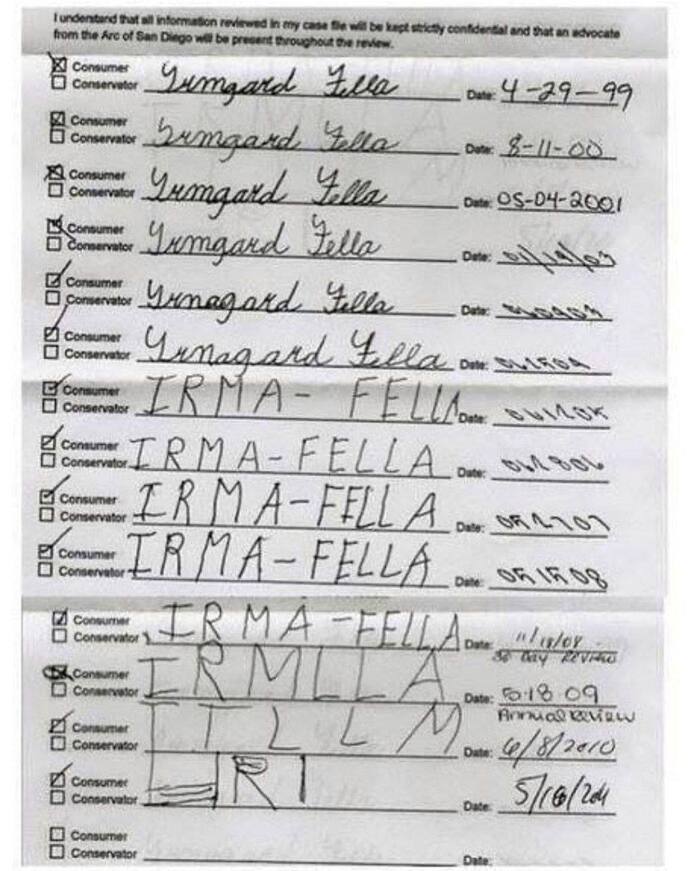 I understand that all information reviewed in my case file will be kept strictly confidential and that an advocate
from the Arc of San Diego will be present throughout the review.
Consumer
Conservator Yrmgard Fella Date: 4-29-99
Consumer
Conservator Yrmgard Fella Date: 8-11-00
Consumer
Conservator Yrmgard Fella Date: 05-04-2001
Consumer
Conservator Yrmgard Fella Date:
Consumer
Conservator Yrnagard Fella Date:
Consumer
Conservator Yrnagard Fella Date:
Consumer
Conservator IRMA- FELLA Date:
Consumer
Conservator IRMA-FELLA Date:
Consumer
Conservator IRMA-FELLA Date:
Consumer
Conservator IRMA-FELLA Date: 051508
Consumer
Conservator IRMA-FELLA Date: 11/18/08
30 Day Review
Consumer
Conservator IRMLLA Date: 5-18 09
Annual Review
Consumer
Conservator ITLLM Date: 6/8/2010
Consumer
Conservator RI Date:
Consumer
Conservator Date: